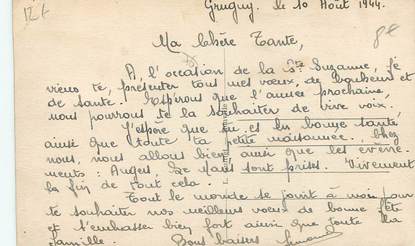 12t
Grugny. le 10 Août 1944.
8e
Ma Chère Tante,
A, l'occasion de la Ste Suzanne, je
viens te, présenter tout mes vœux, de bonheur et
de santé. Espérons que l'année prochaine,
nous pourrons te la souhaiter de vive voix.
J'espère que tu es en bonne santé,
ainsi que toute ta petite maisonnée. Chez
nous, nous allons bien ainsi que les événe-
ments : Angers, Le Mans sont prises. Vivement
la fin de tout cela.
Tout le monde se joint à moi pour
te souhaiter nos meilleurs vœux de bonne fête
et t'embrasser bien fort ainsi que toute la
famille. Bons baisers